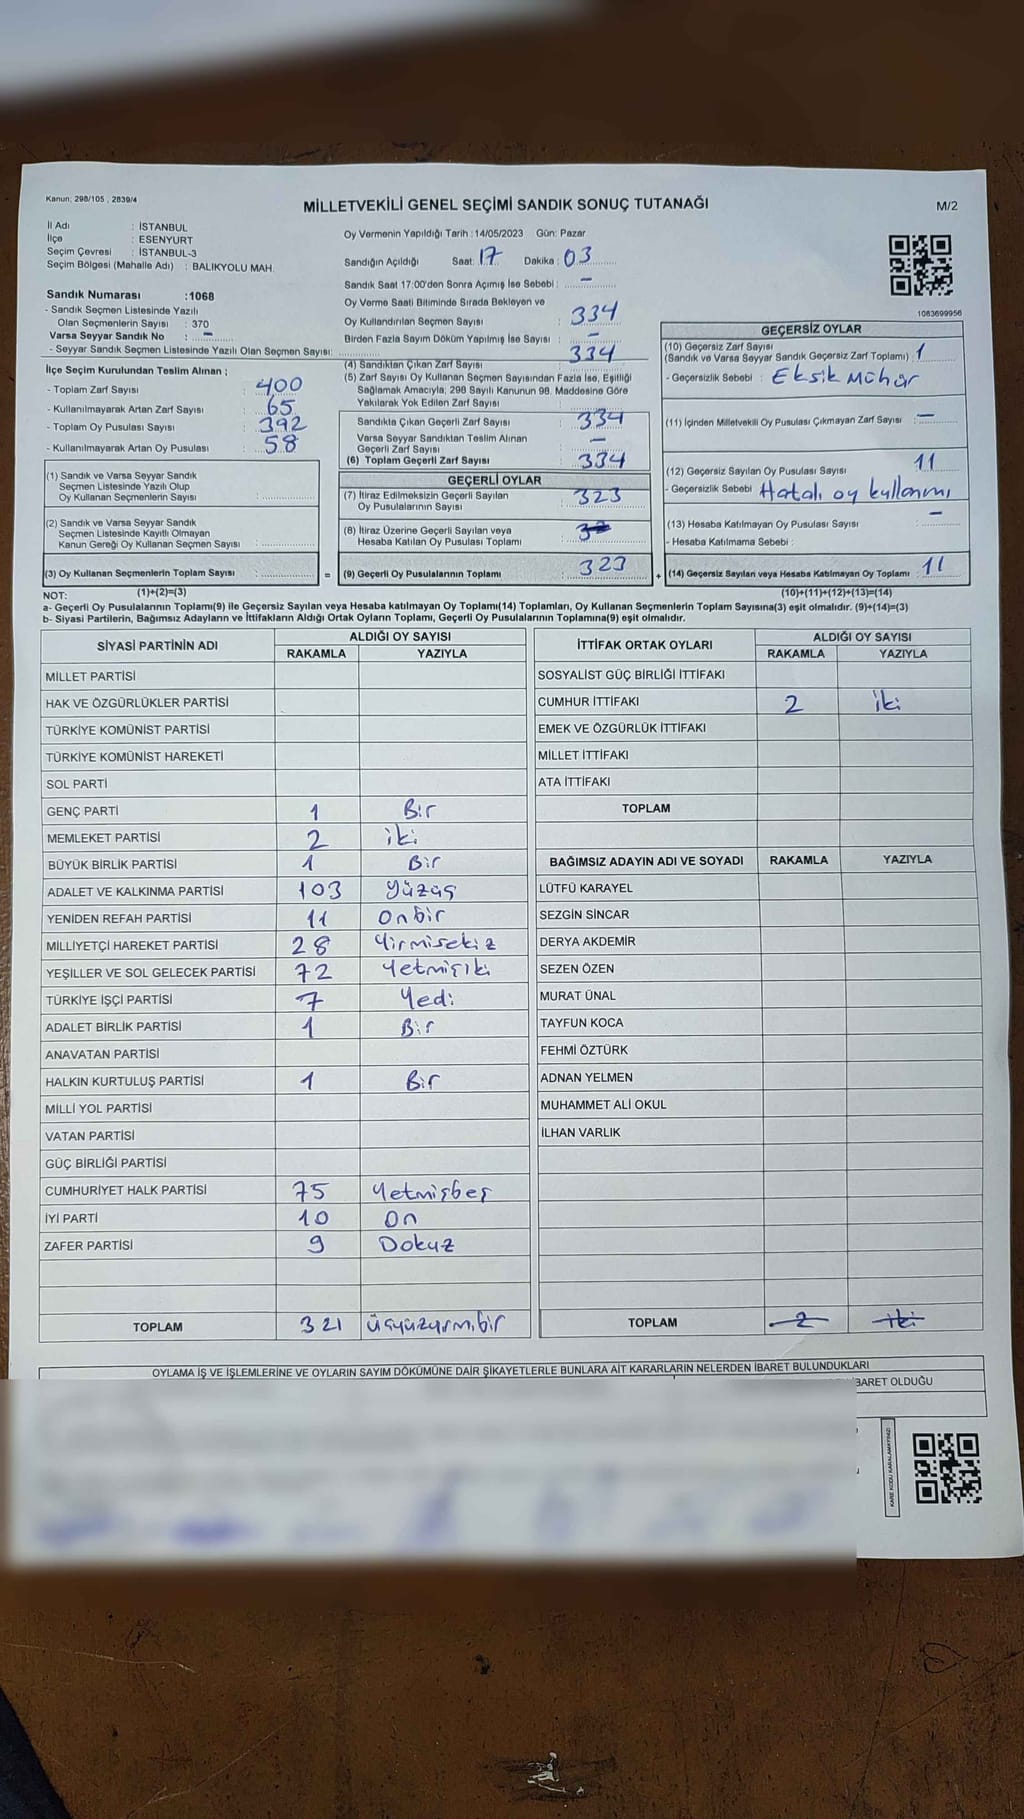 Kanun; 298/105 , 2839/4
MİLLETVEKİLİ GENEL SEÇİMİ SANDIK SONUÇ TUTANAĞI
M/2
İl Adı : İSTANBUL
İlçe : ESENYURT
Seçim Çevresi : İSTANBUL-3
Seçim Bölgesi (Mahalle Adı) : BALIKYOLU MAH.
Oy Vermenin Yapıldığı Tarih : 14/05/2023 Gün: Pazar
Sandığın Açıldığı Saat: 17 Dakika : 03
Sandık Saat 17:00'den Sonra Açımış İse Sebebi : –
Oy Verme Saati Bitiminde Sırada Bekleyen ve
Oy Kullandırılan Seçmen Sayısı : 334
Birden Fazla Sayım Döküm Yapılmış İse Sayısı : –
Sandık Numarası :1068
- Sandık Seçmen Listesinde Yazılı
Olan Seçmenlerin Sayısı : 370
Varsa Seyyar Sandık No : –
- Seyyar Sandık Seçmen Listesinde Yazılı Olan Seçmen Sayısı:
İlçe Seçim Kurulundan Teslim Alınan ;
- Toplam Zarf Sayısı : 400
- Kullanılmayarak Artan Zarf Sayısı : 65
- Toplam Oy Pusulası Sayısı : 392
- Kullanılmayarak Artan Oy Pusulası : 58
(1) Sandık ve Varsa Seyyar Sandık
Seçmen Listesinde Yazılı Olup
Oy Kullanan Seçmenlerin Sayısı :
(2) Sandık ve Varsa Seyyar Sandık
Seçmen Listesinde Kayıtlı Olmayan
Kanun Gereği Oy Kullanan Seçmen Sayısı :
(3) Oy Kullanan Seçmenlerin Toplam Sayısı : =
(4) Sandıktan Çıkan Zarf Sayısı : 334
(5) Zarf Sayısı Oy Kullanan Seçmen Sayısından Fazla İse, Eşitliği
Sağlamak Amacıyla, 298 Sayılı Kanunun 98. Maddesine Göre
Yakılarak Yok Edilen Zarf Sayısı :
Sandıkta Çıkan Geçerli Zarf Sayısı : 334
Varsa Seyyar Sandıktan Teslim Alınan
Geçerli Zarf Sayısı : –
(6) Toplam Geçerli Zarf Sayısı : 334
GEÇERLİ OYLAR
(7) İtiraz Edilmeksizin Geçerli Sayılan
Oy Pusulalarının Sayısı : 323
(8) İtiraz Üzerine Geçerli Sayılan veya
Hesaba Katılan Oy Pusulası Toplamı :
(9) Geçerli Oy Pusulalarının Toplamı : 323 +
1083699956
GEÇERSİZ OYLAR
(10) Geçersiz Zarf Sayısı
(Sandık ve Varsa Seyyar Sandık Geçersiz Zarf Toplamı) : 1
- Geçersizlik Sebebi : Eksik Mühür
(11) İçinden Milletvekili Oy Pusulası Çıkmayan Zarf Sayısı : –
(12) Geçersiz Sayılan Oy Pusulası Sayısı : 11
- Geçersizlik Sebebi : Hatalı oy kullanımı
(13) Hesaba Katılmayan Oy Pusulası Sayısı : –
- Hesaba Katılmama Sebebi :
(14) Geçersiz Sayılan veya Hesaba Katılmayan Oy Toplamı : 11
NOT: (1)+(2)=(3) (10)+(11)+(12)+(13)=(14)
a- Geçerli Oy Pusulalarının Toplamı(9) ile Geçersiz Sayılan veya Hesaba katılmayan Oy Toplamı(14) Toplamları, Oy Kullanan Seçmenlerin Toplam Sayısına(3) eşit olmalıdır. (9)+(14)=(3)
b- Siyasi Partilerin, Bağımsız Adayların ve İttifakların Aldığı Ortak Oyların Toplamı, Geçerli Oy Pusulalarının Toplamına(9) eşit olmalıdır.
SİYASİ PARTİNİN ADI ALDIĞI OY SAYISI
RAKAMLA YAZIYLA
MİLLET PARTİSİ
HAK VE ÖZGÜRLÜKLER PARTİSİ
TÜRKİYE KOMÜNİST PARTİSİ
TÜRKİYE KOMÜNİST HAREKETİ
SOL PARTİ
GENÇ PARTİ 1 Bir
MEMLEKET PARTİSİ 2 iki
BÜYÜK BİRLİK PARTİSİ 1 Bir
ADALET VE KALKINMA PARTİSİ 103 Yüzüç
YENİDEN REFAH PARTİSİ 11 Onbir
MİLLİYETÇİ HAREKET PARTİSİ 28 Yirmisekiz
YEŞİLLER VE SOL GELECEK PARTİSİ 72 Yetmişiki
TÜRKİYE İŞÇİ PARTİSİ 7 Yedi
ADALET BİRLİK PARTİSİ 1 Bir
ANAVATAN PARTİSİ
HALKIN KURTULUŞ PARTİSİ 1 Bir
MİLLİ YOL PARTİSİ
VATAN PARTİSİ
GÜÇ BİRLİĞİ PARTİSİ
CUMHURİYET HALK PARTİSİ 75 Yetmişbeş
İYİ PARTİ 10 On
ZAFER PARTİSİ 9 Dokuz
TOPLAM 321 üçyüzyirmibir
İTTİFAK ORTAK OYLARI ALDIĞI OY SAYISI
RAKAMLA YAZIYLA
SOSYALİST GÜÇ BİRLİĞİ İTTİFAKI
CUMHUR İTTİFAKI 2 iki
EMEK VE ÖZGÜRLÜK İTTİFAKI
MİLLET İTTİFAKI
ATA İTTİFAKI
TOPLAM
BAĞIMSIZ ADAYIN ADI VE SOYADI RAKAMLA YAZIYLA
LÜTFÜ KARAYEL
SEZGİN SİNCAR
DERYA AKDEMİR
SEZEN ÖZEN
MURAT ÜNAL
TAYFUN KOCA
FEHMİ ÖZTÜRK
ADNAN YELMEN
MUHAMMET ALİ OKUL
İLHAN VARLIK
TOPLAM 2 iki
OYLAMA İŞ VE İŞLEMLERİNE VE OYLARIN SAYIM DÖKÜMÜNE DAİR ŞİKAYETLERLE BUNLARA AİT KARARLARIN NELERDEN İBARET BULUNDUKLARI
İBARET OLDUĞU
KARE KODU KARALAMAYINIZ!